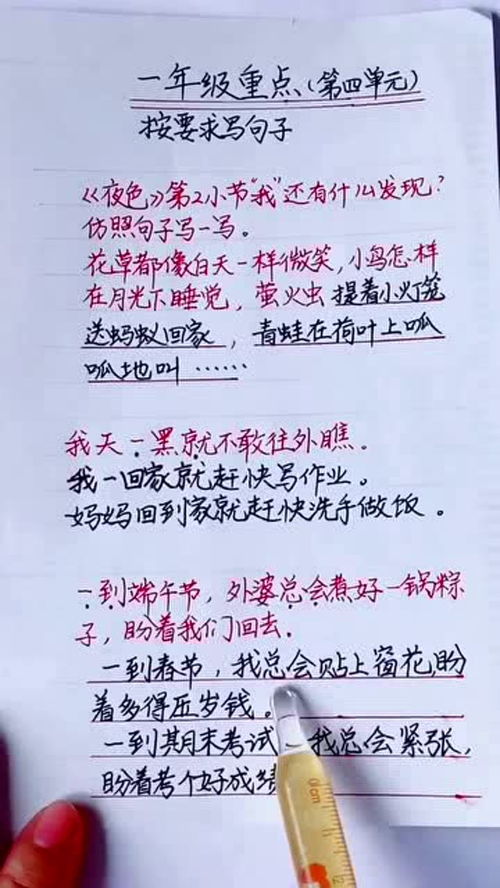 一年级重点(第四单元)
按要求写句子
《夜色》第2小节“我”还有什么发现?
仿照句子写一写。
花草都像白天一样微笑,小鸟怎样
在月光下睡觉,萤火虫提着小灯笼
送蚂蚁回家,青蛙在荷叶上呱
呱地叫……
我天一黑就不敢往外瞧。
我一回家就赶快写作业。
妈妈回到家就赶快洗手做饭。
一到端午节,外婆总会煮好一锅粽
子,盼着我们回去。
一到春节,我总会贴上窗花盼
着多得压岁钱。
一到其月末考试 我总会紧张,
盼着考个好成绩